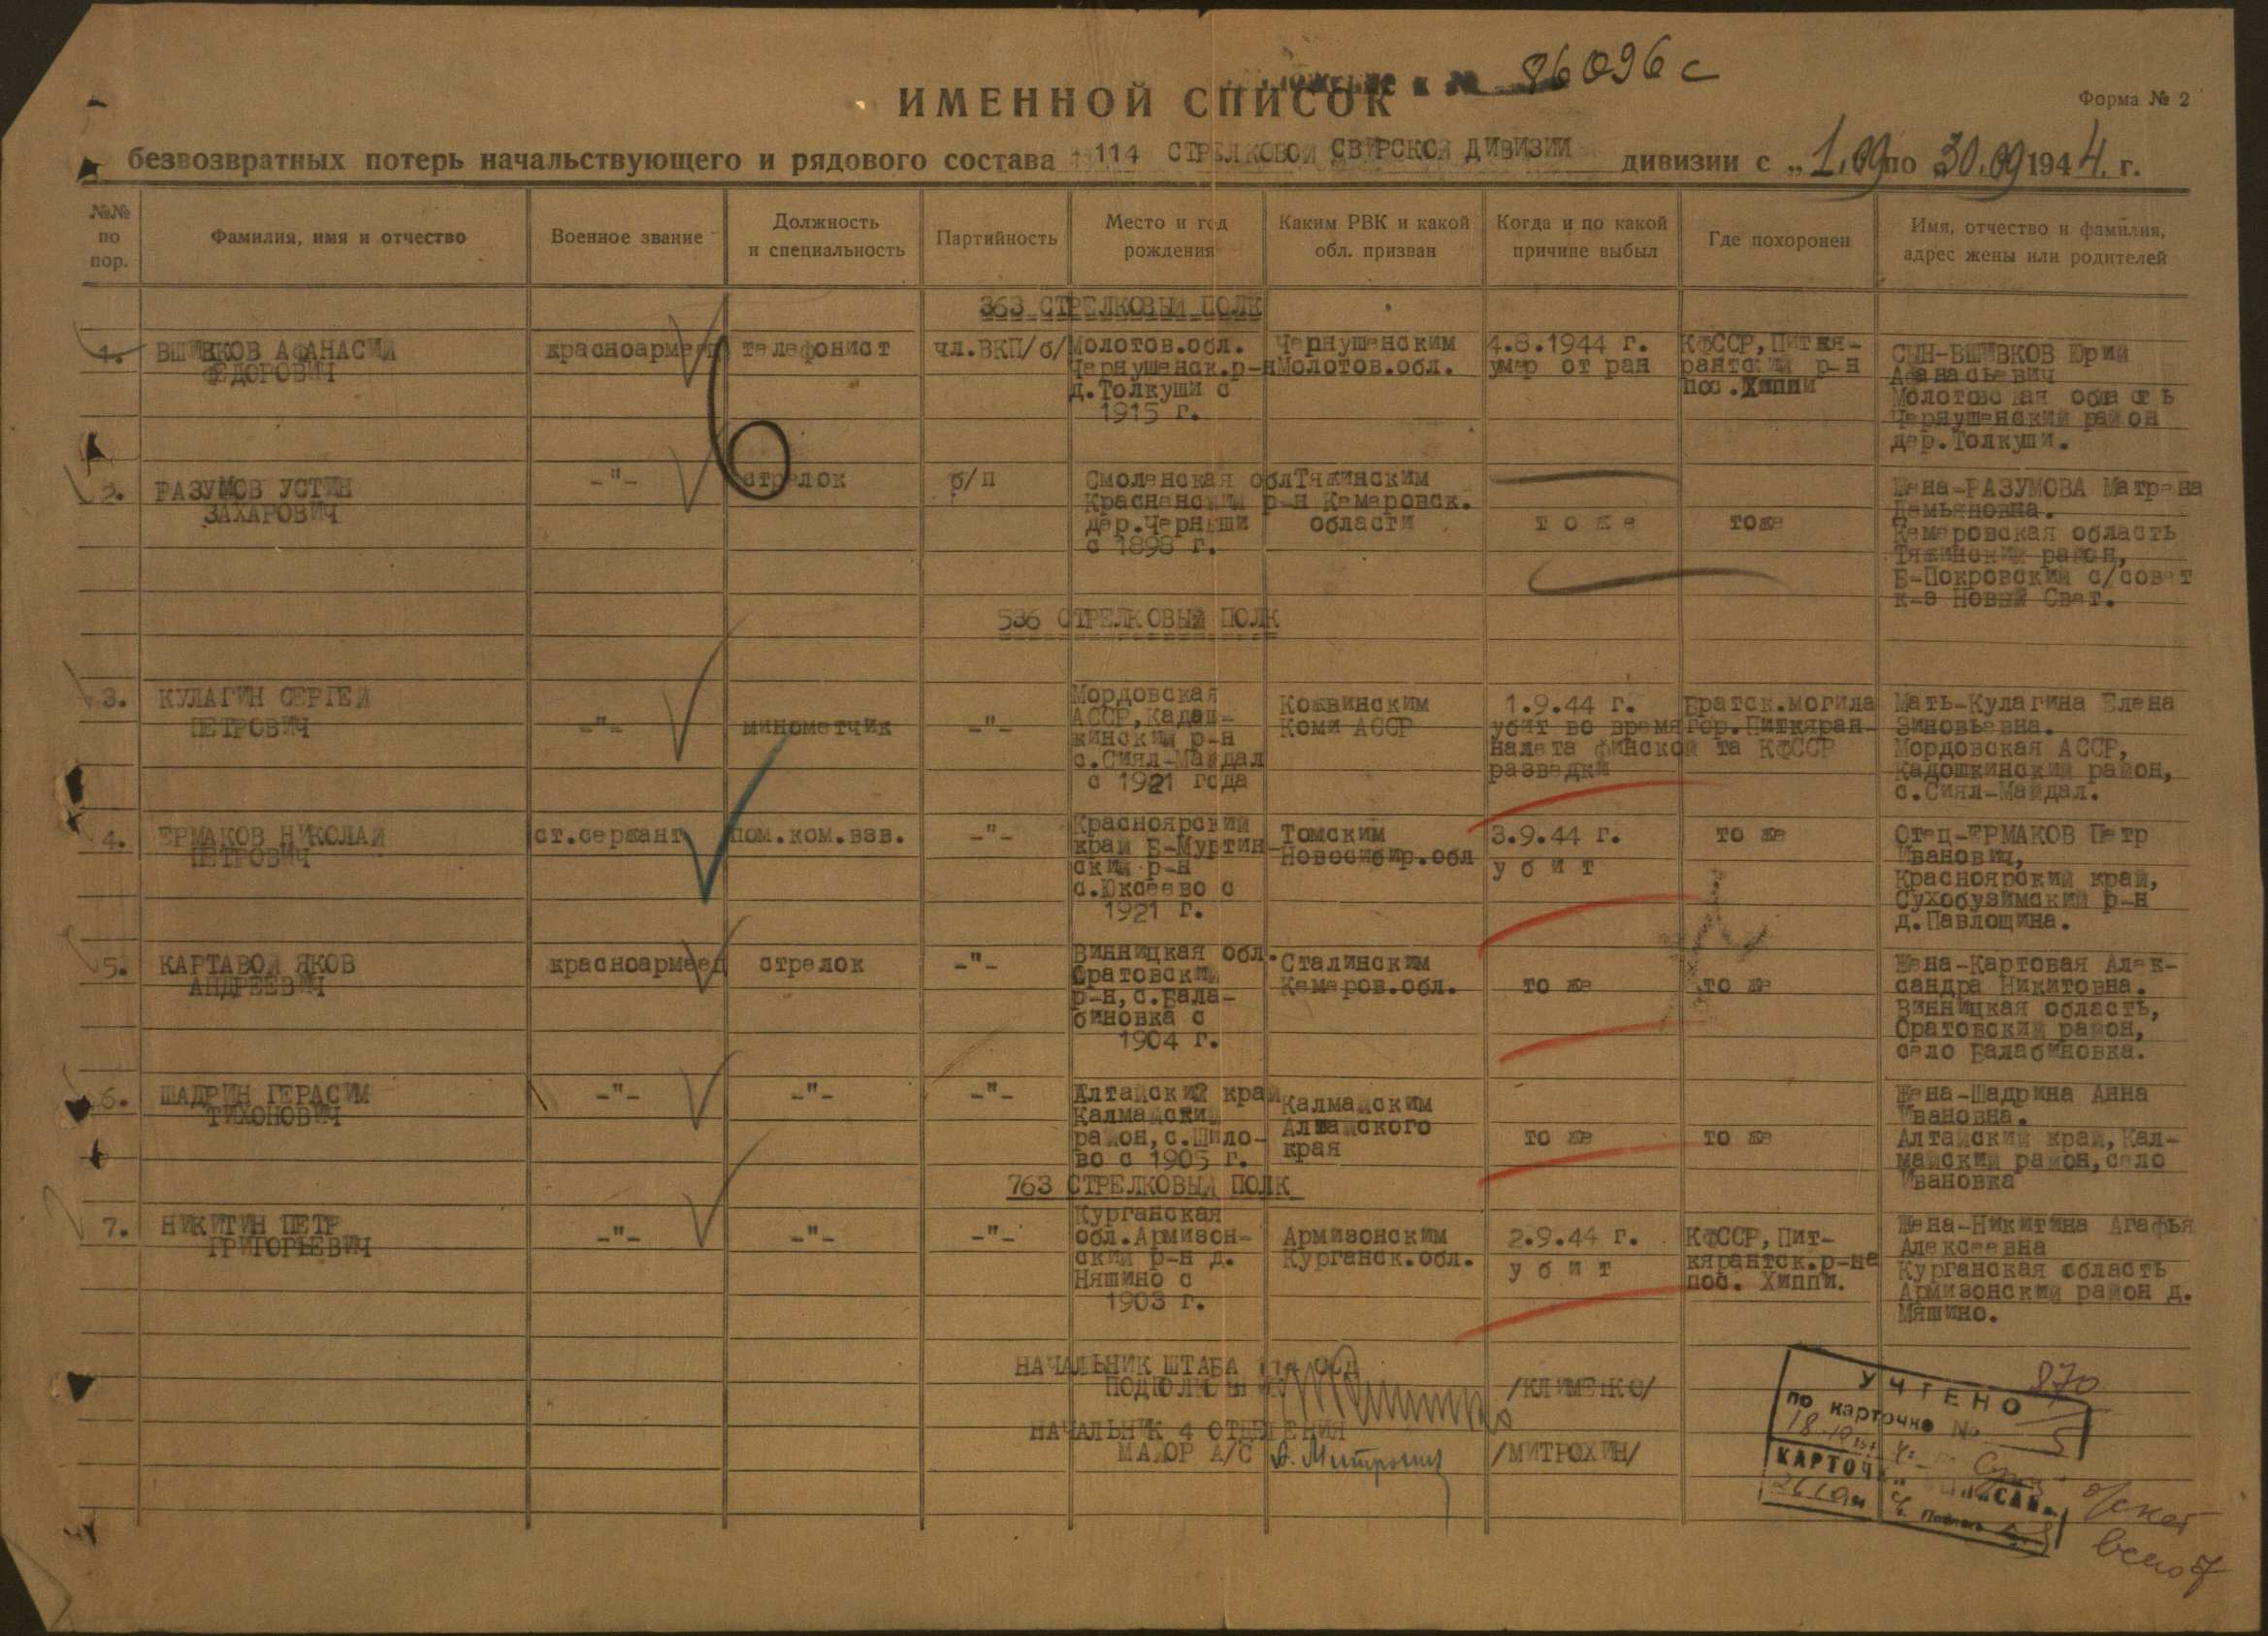 86096с
ИМЕННОЙ СПИСОК
Форма № 2
безвозвратных потерь начальствующего и рядового состава 114 СТРЕЛКОВОЙ СВИРСКОЙ ДИВИЗИИ дивизии с „1.09 по 30.09 1944. г.
№№ по пор.
Фамилия, имя и отчество
Военное звание
Должность и специальность
Партийность
Место и год рождения
Каким РВК и какой обл. призван
Когда и по какой причине выбыл
Где похоронен
Имя, отчество и фамилия, адрес жены или родителей
363 СТРЕЛКОВЫЙ ПОЛК
1.
ВШИВКОВ АФАНАСИЙ
ФЕДОРОВИЧ
красноармеец
телефонист
чл.ВКП/б/
Молотов.обл.
Чернушенск.р-н
д.Толкуши с
1915 г.
Чернушенским
Молотов.обл.
4.8.1944 г.
умер от ран
КФССР, Питкя-
рантский р-н
пос.Хиппи
СЫН-ВШИВКОВ Юрий
Афанасьевич
Молотовская область
Чернушенский район
дер.Толкуши.
2.
РАЗУМОВ УСТИН
ЗАХАРОВИЧ
-"-
стрелок
б/п
Смоленская обл
Красненский р-н
дер.Черныши
с 1898 г.
Тяжинским
Кемеровск.
области
тоже
тоже
Жена-РАЗУМОВА Матрена
Демьяновна.
Кемеровская область
Тяжинский район,
Б-Покровский с/совет
к-з Новый Свет.
536 СТРЕЛКОВЫЙ ПОЛК
3.
КУЛАГИН СЕРГЕЙ
ПЕТРОВИЧ
-"-
минометчик
-"-
Мордовская
АССР, Кадаш-
кинский р-н
с.Сиял-Майдал
с 1921 года
Кожвинским
Коми АССР
1.9.44 г.
убит во время
налета финской
разведки
Братск.могила
гор.Питкяран-
та КФССР
Мать-Кулагина Елена
Зиновьевна.
Мордовская АССР,
Кадошкинский район,
с.Сиял-Майдал.
4.
ЕРМАКОВ НИКОЛАЙ
ПЕТРОВИЧ
ст.сержант
пом.ком.взв.
-"-
Красноярский
край Б-Муртин-
ский р-н
с.Юксеево с
1921 г.
Томским
Новосибир.обл
3.9.44 г.
убит
то же
Отец-ЕРМАКОВ Петр
Иванович,
Красноярский край,
Сухобузимский р-н
д.Павлощина.
5.
КАРТАВОЙ ЯКОВ
АНДРЕЕВИЧ
красноармеец
стрелок
-"-
Винницкая обл.
Оратовский
р-н, с.Бала-
биновка с
1904 г.
Сталинским
Кемеров.обл.
то же
то же
Жена-Картовая Алек-
сандра Никитовна.
Винницкая область,
Оратовский район,
село Балабиновка.
6.
ШАДРИН ГЕРАСИМ
ТИХОНОВИЧ
-"-
-"-
-"-
Алтайский край
Калмайский
район, с.Шило-
во с 1905 г.
Калмайским
Алтайского
края
то же
то же
Жена-Шадрина Анна
Ивановна.
Алтайский край, Кал-
майский район, село
Ивановка
763 СТРЕЛКОВЫЙ ПОЛК
7.
НИКИТИН ПЕТР
ГРИГОРЬЕВИЧ
-"-
-"-
-"-
Курганская
обл.Армизон-
ский р-н д.
Няшино с
1903 г.
Армизонским
Курганск.обл.
2.9.44 г.
убит
КФССР, Пит-
кярантск.р-на
пос. Хиппи.
Жена-Никитина Агафья
Алексеевна
Курганская область
Армизонский район д.
Мяшино.
НАЧАЛЬНИК ШТАБА 114
ПОДПОЛКОВНИК /КЛИМЕНКО/
НАЧАЛЬНИК 4 ОТДЕЛЕНИЯ
МАЙОР А/С А. Митрохин /МИТРОХИН/
УЧТЕНО 870
по карточке №
КАРТОЧ